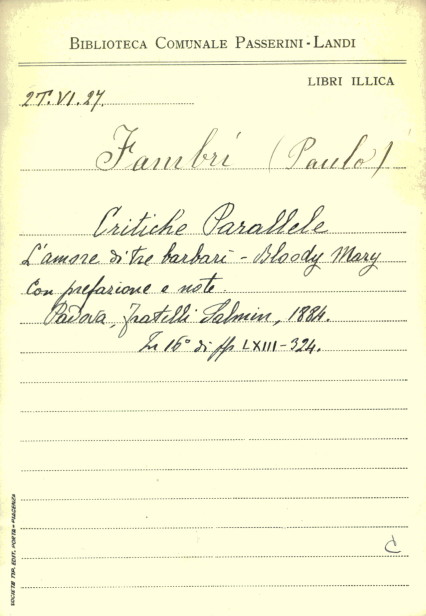 BIBLIOTECA COMUNALE PASSERINI-LANDI
LIBRI ILLICA
2T.VI.27.
Fambri (Paulo)
Critiche Parallele
L'amore di tre barbari - Bloody Mary
Con prefazione e note.
Padova, Fratelli Salmin, 1884.
In 16° di pp LXIII-324.
C
SOCIETÀ TIP. EDIT. PORTA - PIACENZA